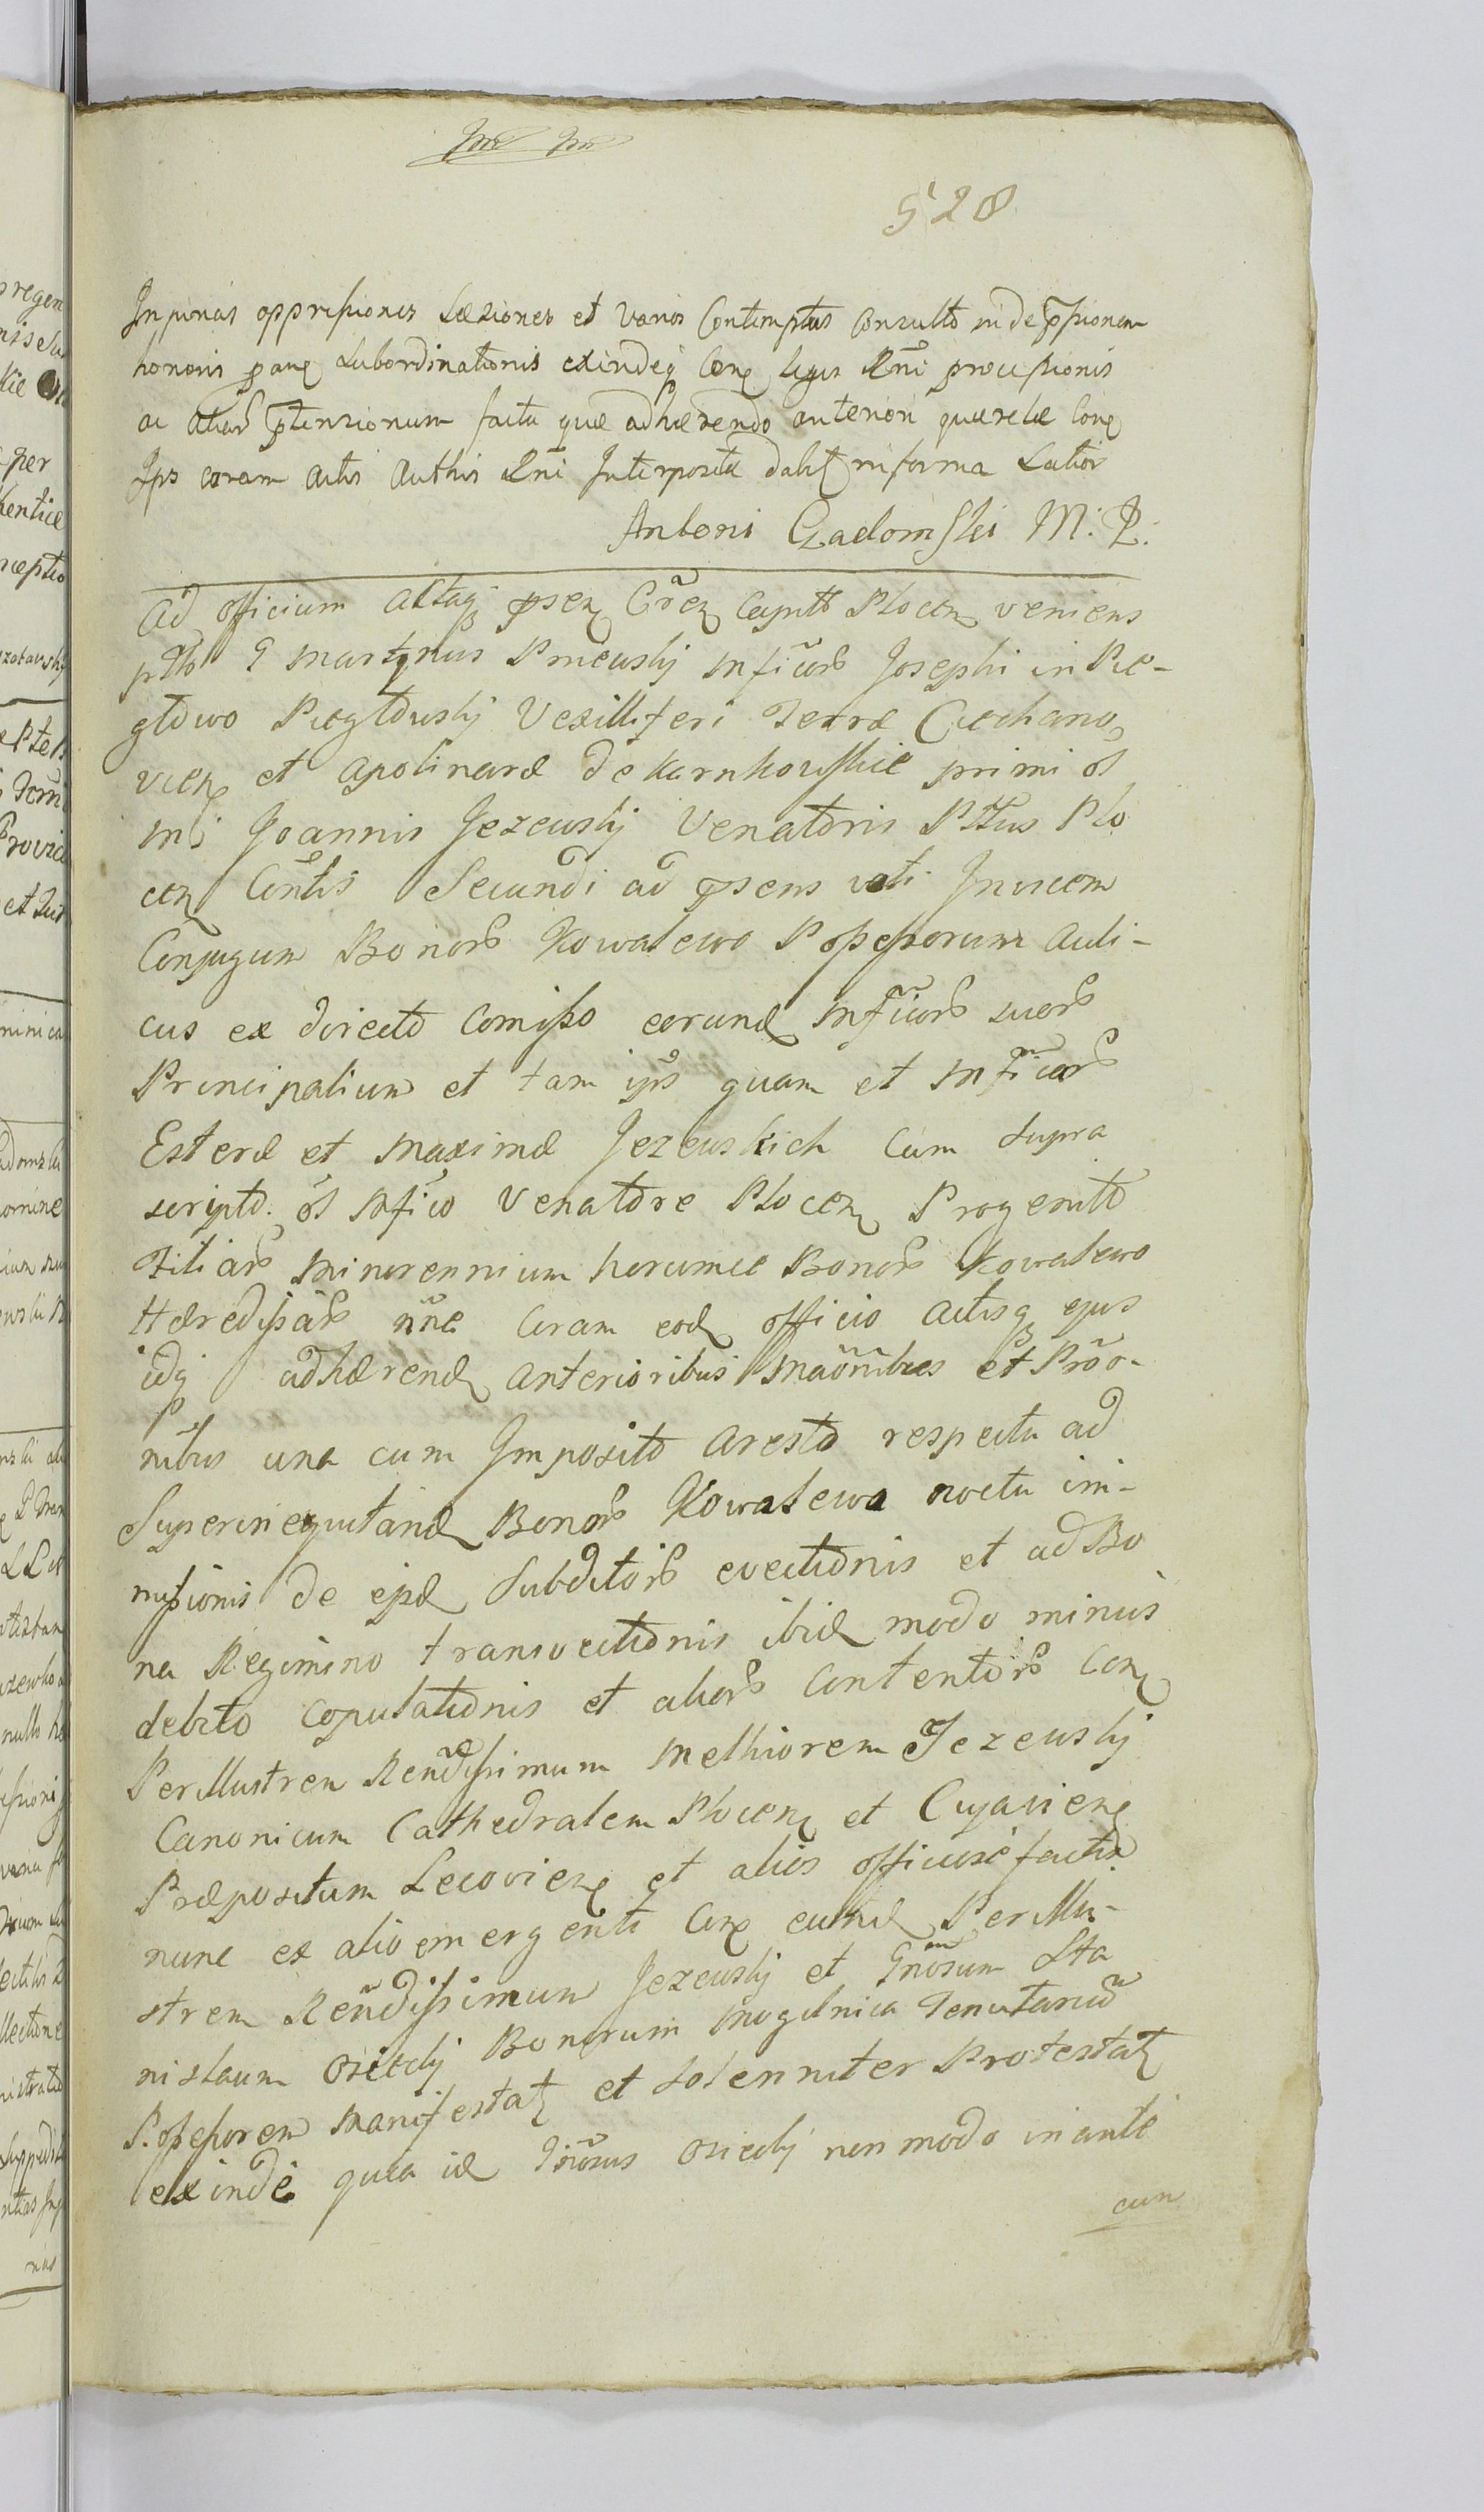 528
Injurias oppressiones Læsiones et varios Contemptus Consulto in
honoris subordinationis exindeq Conq legis Rni
ac aliar ptensionum facta quæ adhærendo anteriori querelæ
Ips coram actis Authis Rni Interpositæ dabit in forma Latiori
Antoni Gadomski M: P:
Ad officium Actaq psen Cren Captt Plocen veniens
ptto G Martinus Mficor Josephi in Rze-
gtowo Rzegtowskj Vexilliferi Terræ Ciechano,
vien et Apolinaræ de Karnkowskie primi ol
M: Joannis Jezewskj Venatoris Pttus Plo
cen Contis Secundi ad psens voti Invicem
Conjugum Bonor Kowalewo Possessorum Auli-
cus ex directo Comisso eorund Mficor suor
Principalium et tam ips quam et Mficar
Esteræ et Maximæ Jezewskich Cum supra
scripto ol Mfico Venatore Plocen Progenito
Filiar Minorennium horumce Bonor Kowalewo
Hæredissar nne Coram eod officio Actisq ejus
idq adhærend anterioribus Maonibus et Proo-
nibus una cum Imposito Aresto respectu ad
Superinequitand Bonor Kowalewa noctu im-
missionis de ejsd Subditor evectionis et ad Bo
na Regimino transvectionis ibid modo minus
debito Copulationis et alior Contentor Con
Perillustrem Rendissimum Melhiorem Jezewskj
Canonicum Cathedralem Plocen et Cujavien
Præpositum Lecovien et alios officiose factis
nunc ex alio emergenti Con eund Perillu-
strem Rendissimum Jezewskj et Gnosum Sta
nislaum Osieckj Bonorum Mogilnica Tenutarium
Possessorem Manifestat et Solenniter Protestat
exinde quia id Gnosus Osieckj non modo in ante
cum